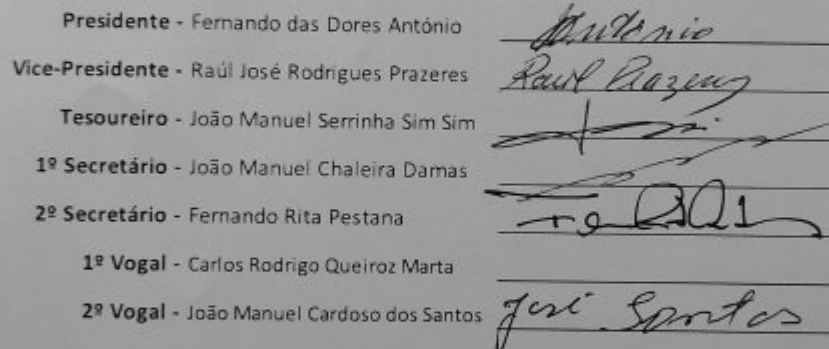 Presidente - Fernando das Dores António António
Vice-Presidente - Raúl José Rodrigues Prazeres Raul Prazeres
Tesoureiro - João Manuel Serrinha Sim Sim
1º Secretário - João Manuel Chaleira Damas
2º Secretário - Fernando Rita Pestana
1º Vogal - Carlos Rodrigo Queiroz Marta
2º Vogal - João Manuel Cardoso dos Santos José Santos